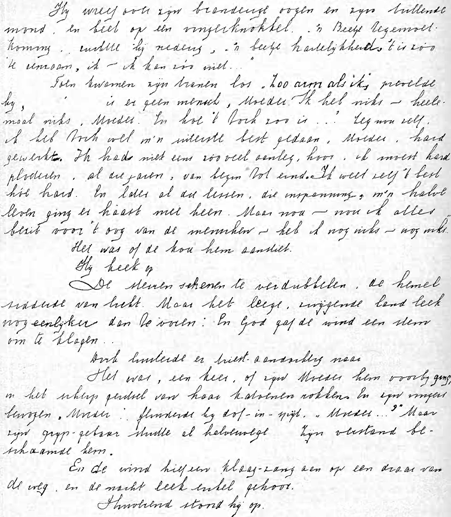 Hij wreef over zijn brandende oogen en zijn trillende
mond, en beet op een vingerknokkel. "'n Beetje tegemoet-
koming, snikte hij nederig, 'n beetje hartelijkheid, 't is zoo
'k eenzaam, ik - ik kan zoo niet..."
Toen kwamen zijn tranen los. "Zoo arm als ik, prevelde
hij, is er geen mensch, Moeder. Ik heb niks - heele-
maal niks, Moeder. En hoe 't toch zoo is...? Zeg nou zelf.
ik heb toch wel m'n uiterste best gedaan, Moeder, hard
gewerkt. Ik had niet eens zooveel aanleg, hoor, ik moest hard
ploeteren, al die jaren, van begin tot eind. Ik weet zelf 't best
hoe hard. En later al die lessen, die inspanning, m'n halve
leven ging er haast mee heen. Maar nou - nou ik alles
bezit voor 't oog van de menschen - heb ik nog niks - nog niks.
Het was of de kou hem aandeet.
Hij keek op
De sterren schenen te verdubbelen, de hemel
sidderde van licht. Maar het leege, zwijgende land leek
nog eenlijker dan te voren: En God gaf de wind een stem
om te klagen...
luisterde er naar
Het was, een keer, of zijn Moeder hem voorbij ging,
in het scherp geritsel van haar rokken. En zijn vingers
bewogen. "Moeder," fluisterde hij "Moeder...?" Maar
zijn grijp-gebaar stuitte al halverwege. Zijn verstand be-
schaamde hem.
En de wind hief een klaag-zang aan op een draad van
de weg, en de nacht leek enkel gehoor.
Huiverend stond hij op.